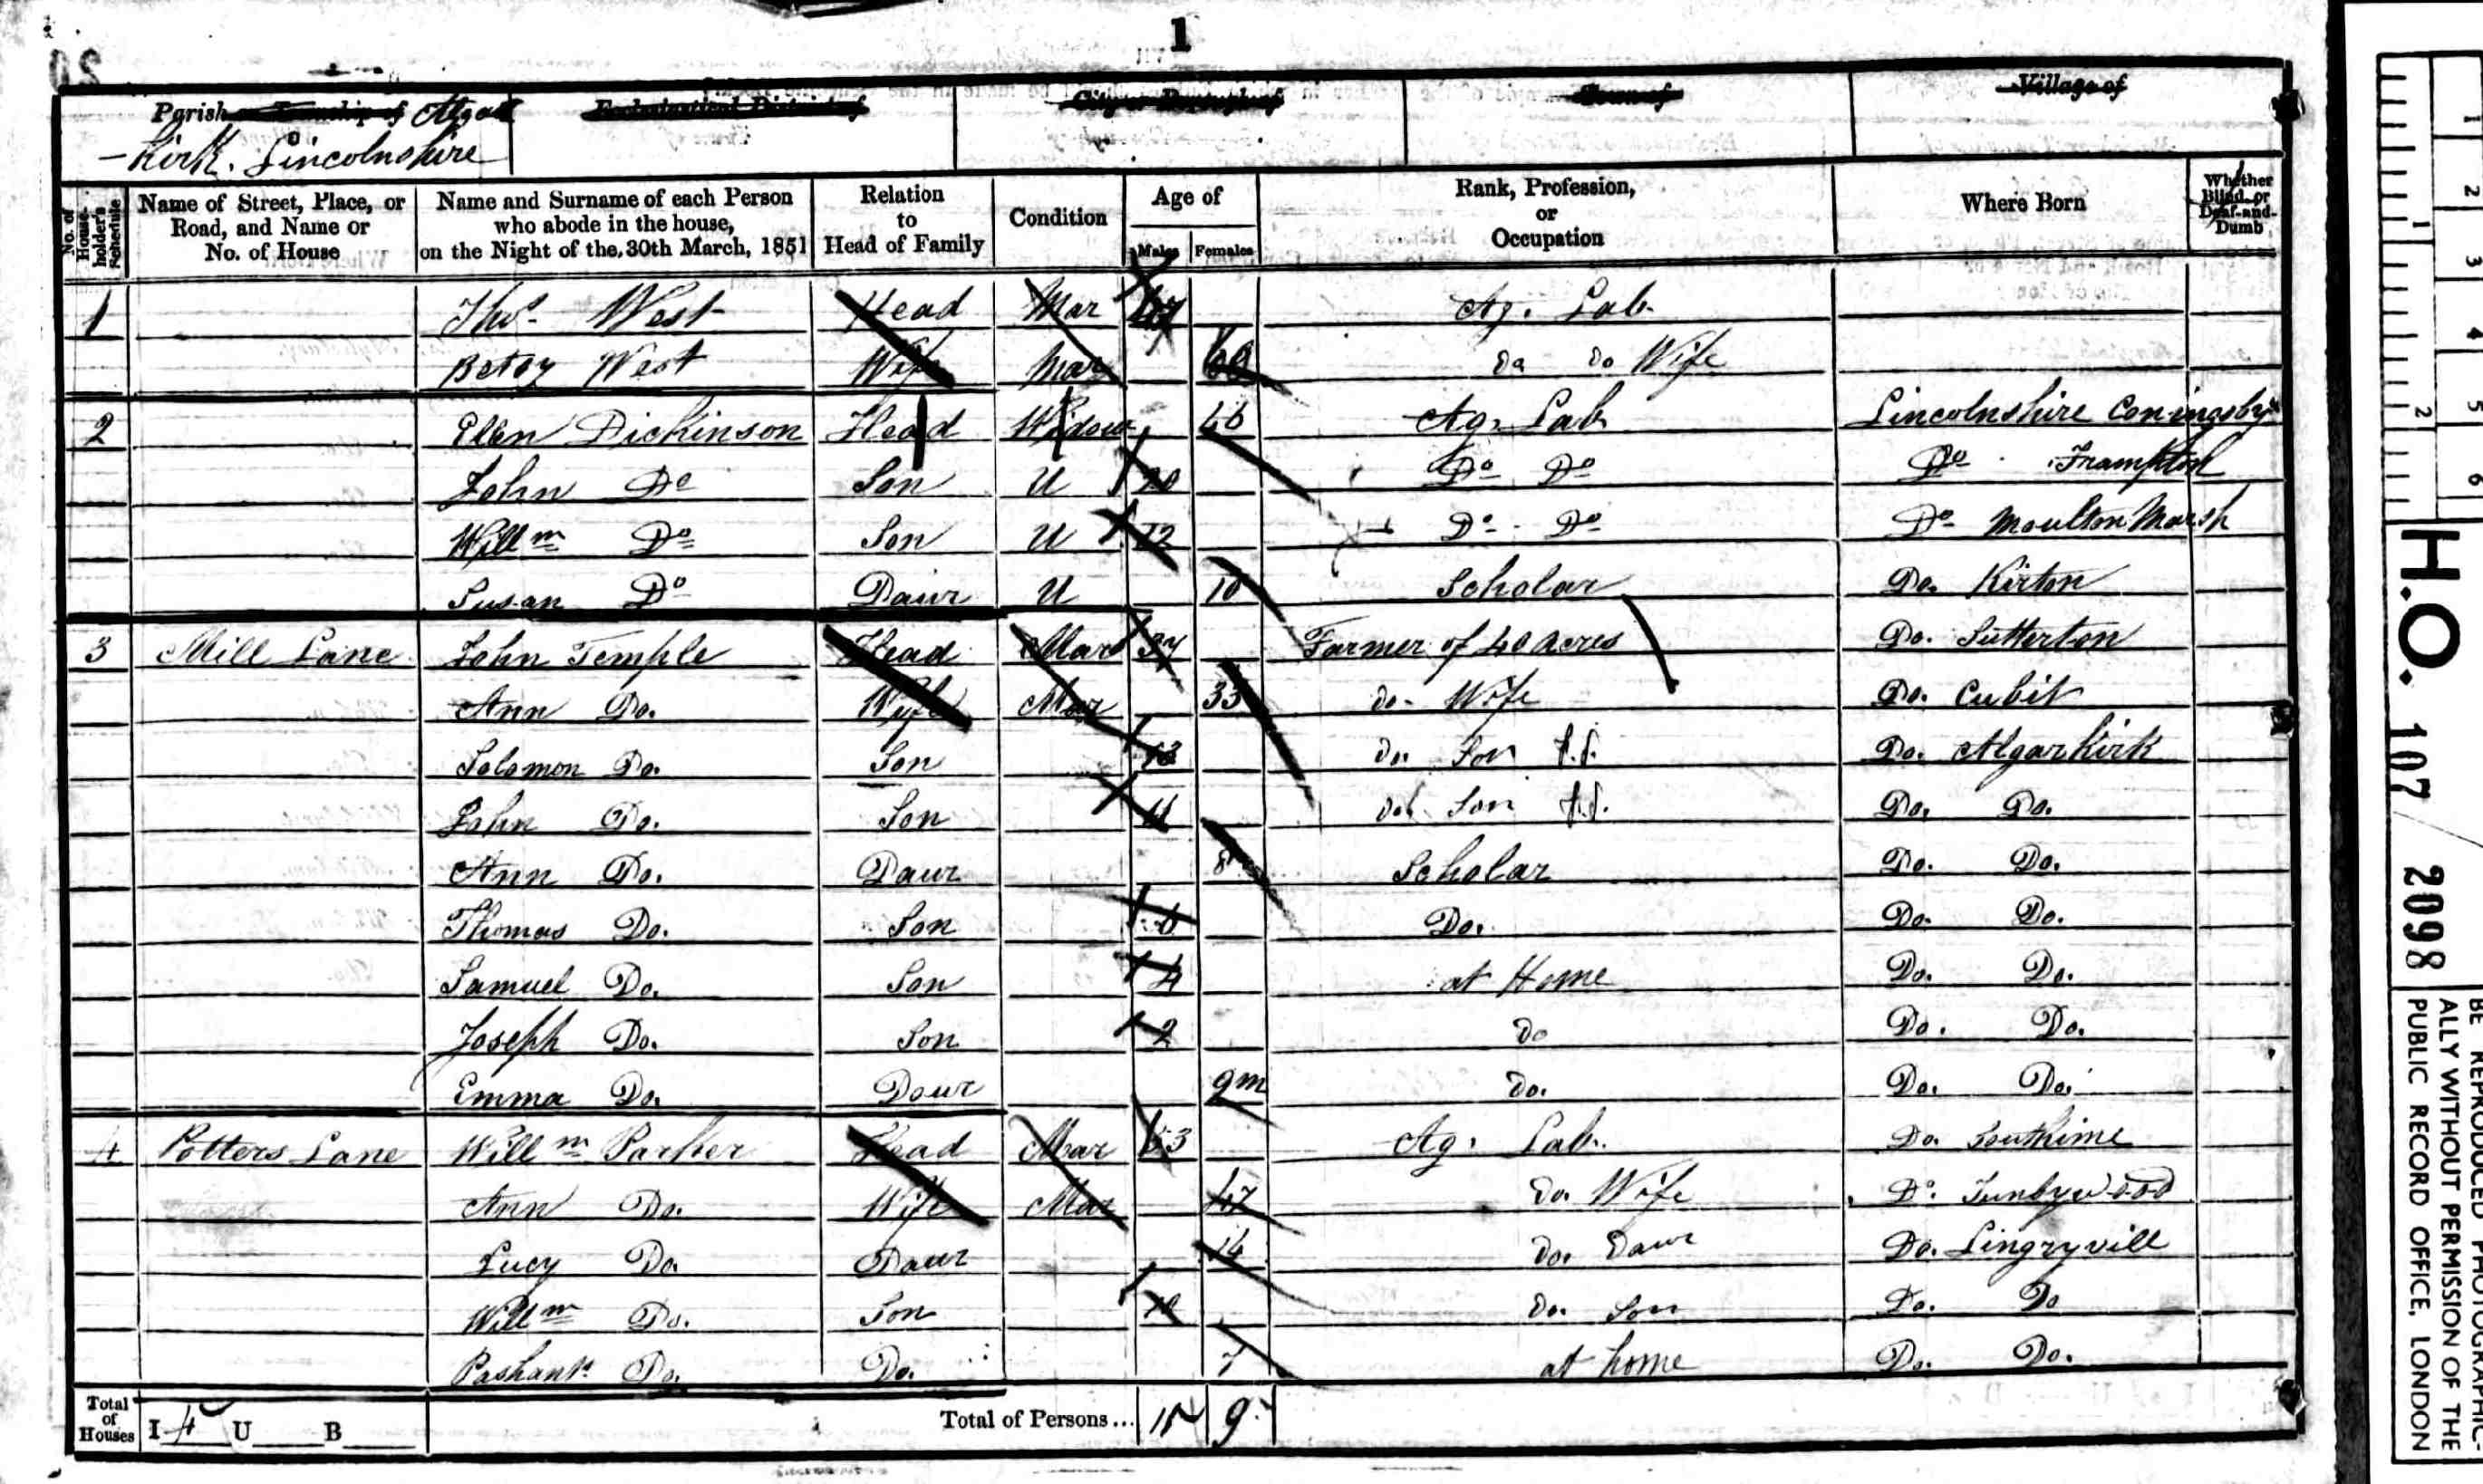 1
Parish Algar
Kirk. Lincolnshire
No. of House-holder's Schedule | Name of Street, Place, or Road, and Name or No. of House | Name and Surname of each Person who abode in the house, on the Night of the 30th March, 1851 | Relation to Head of Family | Condition | Age of Males Females | Rank, Profession, or Occupation | Where Born | Whether Blind, or Deaf-and-Dumb
1 Thos. West Head Mar Ag. Lab.
Betsy West Wife Mar 60 do do Wife
2 Ellen Dickinson Head Widow 46 Ag. Lab Lincolnshire Coningsby
John Do Son U 20 Do Do Do Frampton
Willm Do Son U 12 Do Do Do Moulton Marsh
Susan Do Dawr U 10 Scholar Do. Kirton
3 Mill Lane John Temple Head Mar 37 Farmer of 40 acres Do. Sutterton
Ann Do. Wife Mar 33 do. Wife Do. Cubit
Solomon Do. Son 13 do. Son f.s. Do. Algarkirk
John Do. Son 11 do. Son f.s. Do. Do.
Ann Do. Dawr 8 Scholar Do. Do.
Thomas Do. Son 6 Do. Do. Do.
Samuel Do. Son 4 at Home Do. Do.
Joseph Do. Son 2 do Do. Do.
Emma Do. Dawr 9m do. Do. Do.
4 Potters Lane Willm Parker Head Mar 53 Ag. Lab. Do.
Ann Do. Wife Mar 47 do. Wife Do. Tunbywood
Lucy Do. Dawr 14 do. Dawr Do. Lingryvill
Willm Do. Son 10 do. Son Do. Do
Do. Do. 7 at home Do. Do.
Total of Houses I 4 U B Total of Persons... 15 9
H.O. 107/2098
BE REPRODUCED PHOTOGRAPHIC-
ALLY WITHOUT PERMISSION OF THE
PUBLIC RECORD OFFICE, LONDON